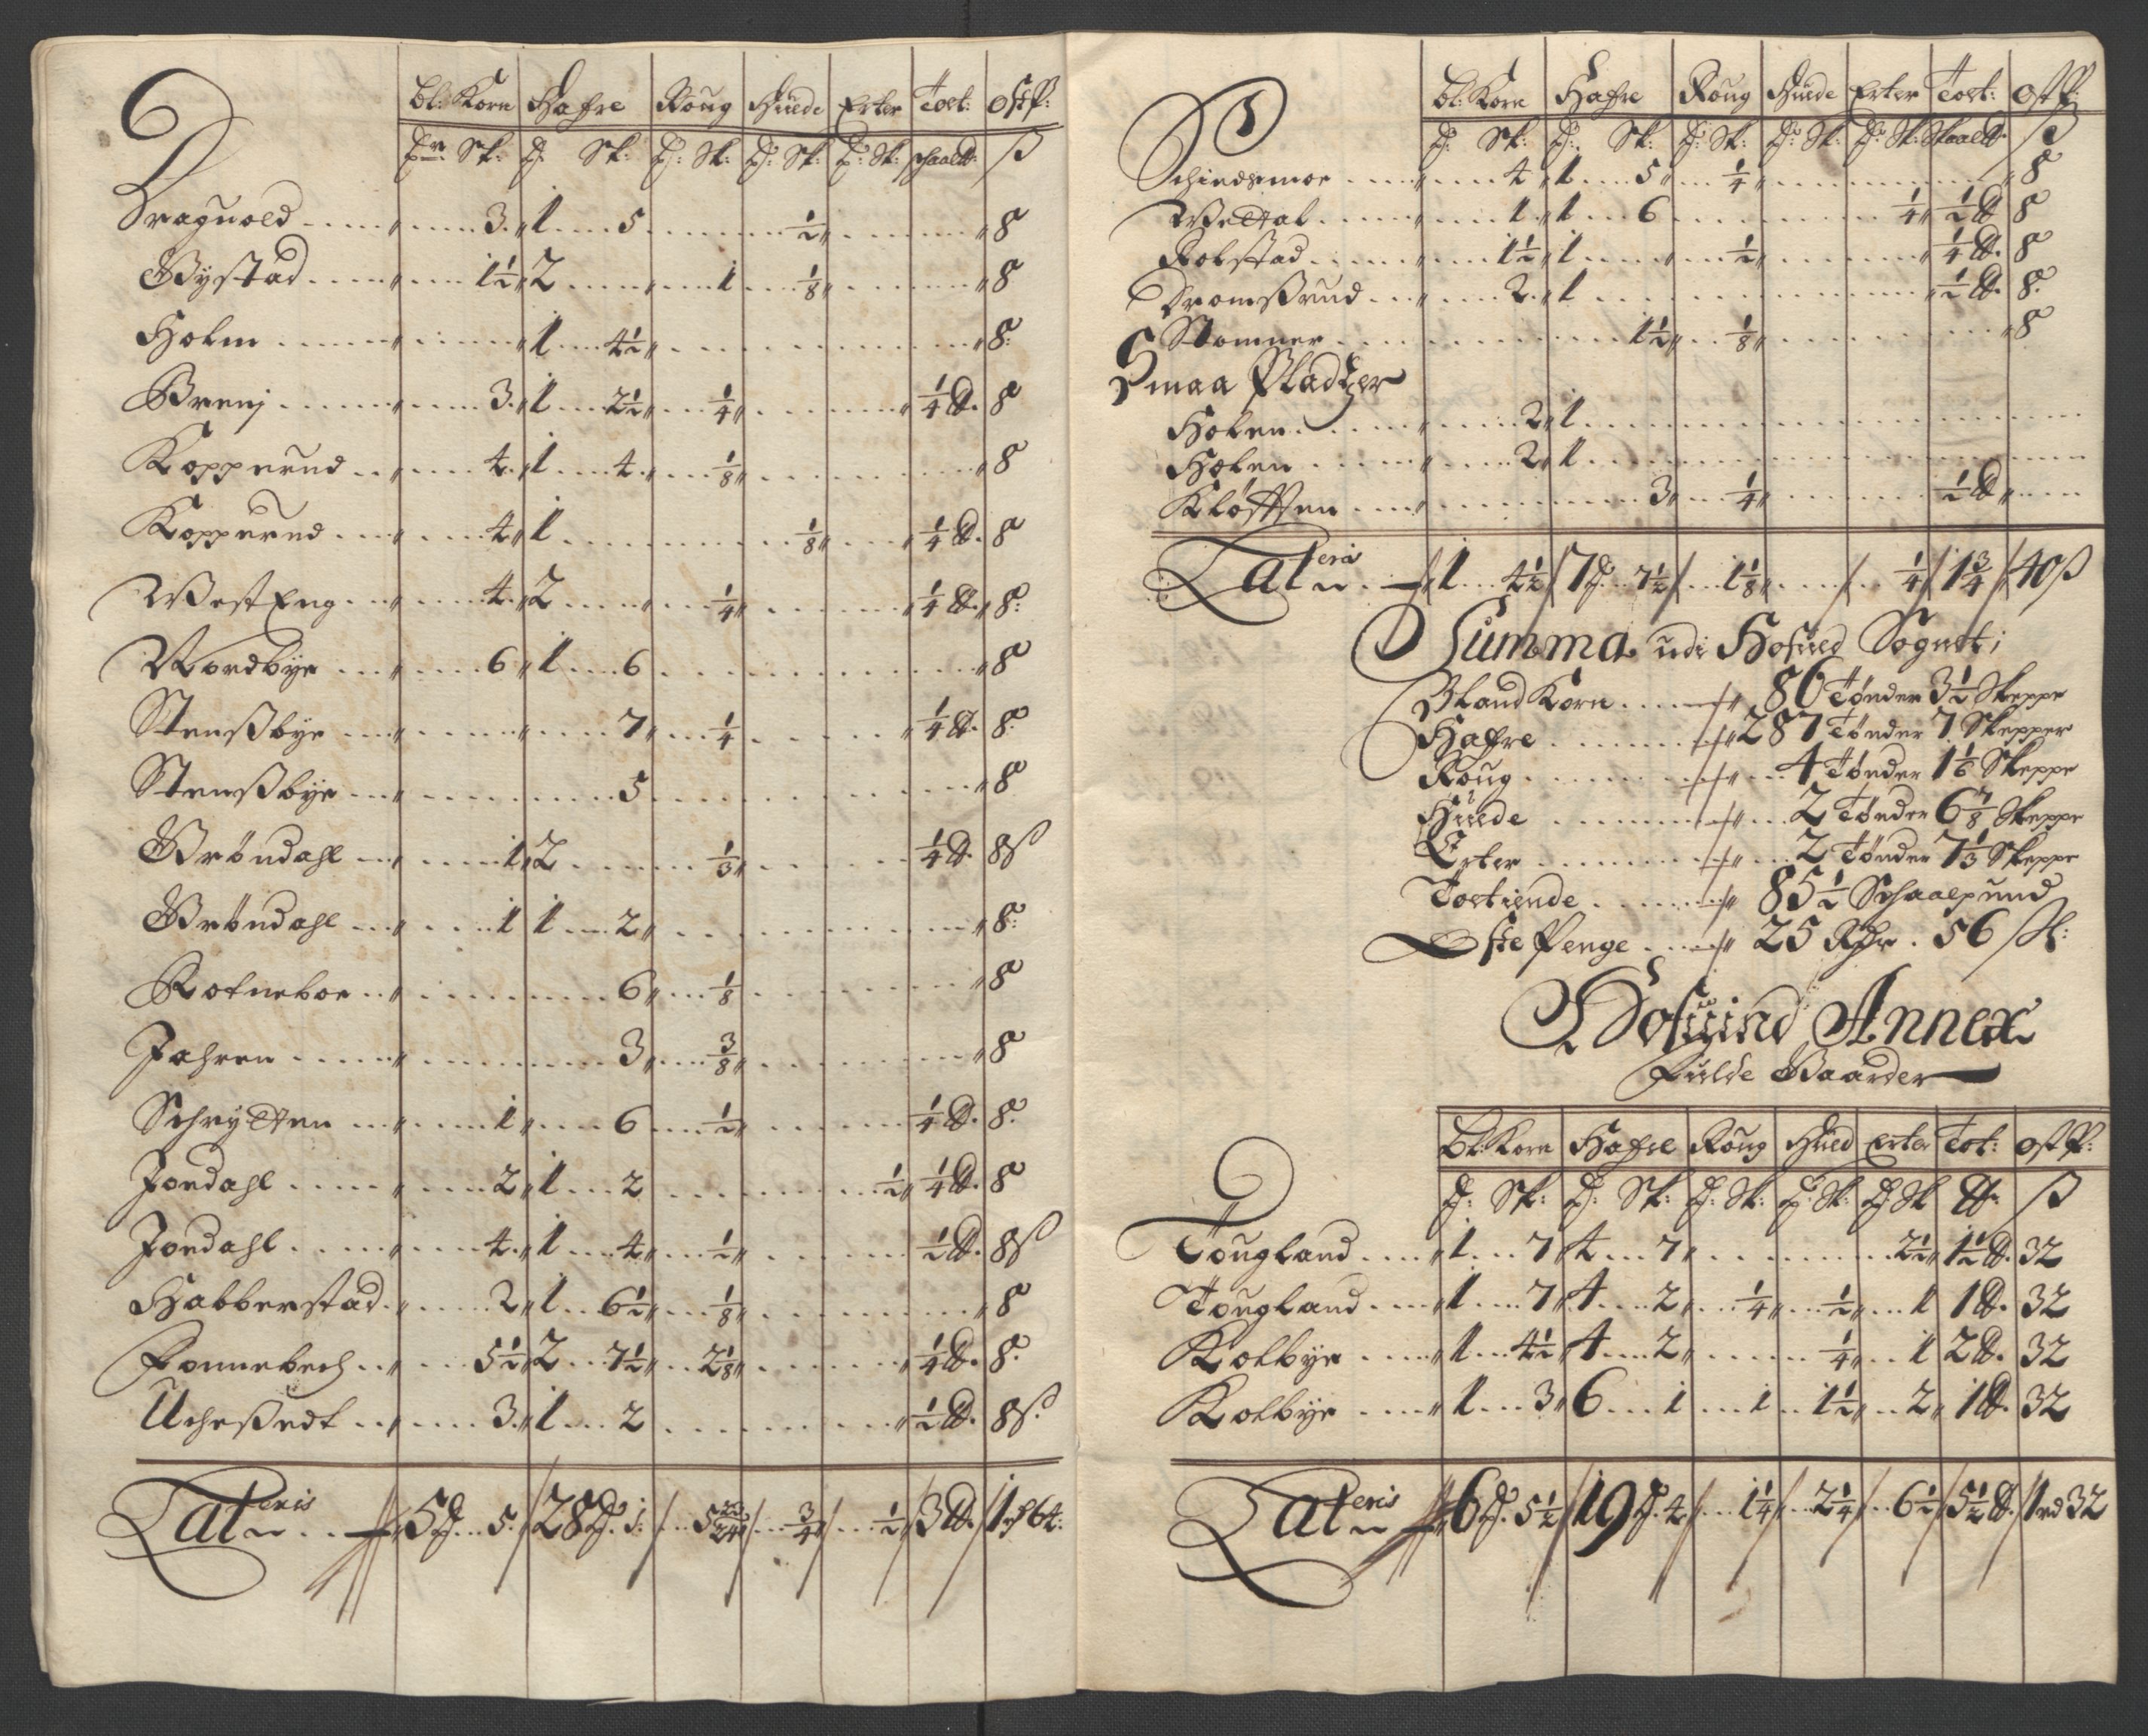 Bl: Korn Hafre Roug Huede Erter Tost: Ost P:
Tr. Sk: T: Sk: T: Sk: T: Sk: T: Sk: schaalll: ß
Draguold ..... „ ..... 3. „ 1 .... 5 ........ 1/2 „ ....... „ 8
Gystad .... „ .... 1 1/2 „ 2 .... „ ... 1 ... 1/8 „ ....... „ 8
Holm ...... „ ...... „ 1 ... 4 1/2 „ ............ „ 8:
Brenj ..... „ ..... 3. „ 1 ... 2 1/2 „ ... 1/4 „ ...... „ 1/4 ll. 8
Kopperud .. „ .... 4. „ 1 .... 4 .... 1/8 „ ........ „ 8
Kopperud ... „ .... 4 „ 1 ............ 1/8 „ .... „ 1/4 ll. 8
WestEng ... „ .... 4. „ 2 ..... „ ... 1/4 „ ...... „ 1/4 ll. „ 8:
Nordbye ... „ .... 6 „ 1 ... 6 ............ „ 8
Stenßbye ... „ ...... „ .... 7 „ ... 1/4 ...... „ 1/4 ll. 8.
Stenßbye ... „ .......... 5 ............ „ 8
Gröndahl ... „ ..... 1 „ 2 ........ 1/3 „ ...... 1/4 ll. 8ß
Gröndahl ... „ .... 1 1 ... 2 „ ........... „ 8:
Rotneboe .. „ .......... 6 „ ... 1/8 ........ „ 8
Jahren ..... „ .......... 3 „ .... 3/8 „ ....... „ 8
Schrytten ... „ ..... 1 „ .... 6 .... 1/2 „ ...... 1/4 ll. 8.
Jordahl ..... „ ..... 2 „ 1 ... 2 ........... 1/2 „ 1/4 ll. 8
Jordahl ..... „ .... 4. „ 1 ... 4 „ ... 1/2 „ ...... 1/2 ll. 8ß
Habberstad . „ ..... 2 „ 1 .. 6 1/2 „ ... 1/8 „ ........ „ 8
Fonnebech .. „ ... 5 1/2 „ 2 ... 7 1/2 „ .. 2 1/8 „ ...... „ 1/4 ll. 8.
Ucheßedt ... „ .... 3. „ 1 ... 2 .......... „ 1/2 ll. 8ß.
Lateris ... 5 T ... 5. 28 T. 1: ... 5 23/24 ... 3/4 ... 1/2 3 ll. 1 rd 64:
Bl: Korn Hafre Roug Huede Erter Tost: Ost P:
T: Sk: T: Sk: T: Sk: T: Sk: T: Sk: Skaalll: ß
Schiedsmoe .... „ .... 4 „ 1 .... 5 „ ... 1/4 „ ......... „ 8
Wettal ..... „ .... 1. „ 1 ... 6 ......... 1/4 „ 1/2 ll 8
Rolstad ..... „ ... 1 1/2 „ 1 ..... „ ... 1/2 „ ...... „ 1/4 ll. 8
Dromßrud ... „ ..... 2. „ 1 ............ „ 1/2 ll. 8.
Stomner .............. 1 1/2 „ .. 1/8 „ ....... „ 8
Smaa Pladtzer
Holen ..... „ ..... 2 „ 1 ...............
Holen ..... „ ..... 2 „ 1 ...............
Kløfften .... „ .......... 3 „ ... 1/4 „ ....... 1/2 ll „ ....
Lateris . 1 ... 4 1/2 7 T. 7 1/2 ... 1 1/8 „ ...... 1/4 1 3/4 40ß
Summa udi Hofued Sognet:
Bland Korn ...... „ 86 Tønder 3 1/2 Skeppe
Hafre ........ „ 287 Tønder 7 Skepper
Roug ......... „ .. 4 Tønder 1 1/6 Skeppe
Huede ........ „ ... 2 Tønder 6 7/8 Skeppe
Erter ........ „ ... 2 Tønder 7 1/3 Skeppe
Tostiende ....... „ 85 1/2 Schaalpund
Oste Penge ..... „ 25 Rdr . 56 sk:
Hofuind Annex
Fulde Gaarder
Bl: Korn Hafre Roug Hued Erter Tot: Ost P:
T: Sk: T: Sk: T: Sk: T: Sk: T: Sk ll: ß
Tougland .... „ 1 ... 7 „ 4 ... 7 „ .......... 2 1/2 „ 1 1/2 ll. 32
Tougland .... „ 1 .... 7 „ 4 .... 2 „ .. 1/4 „ ... 1/2 „ ... 1 1 ll. 32
Kolbye ..... „ 1 ... 4 1/2 „ 4 .... 2 „ ...... 1/4 „ .. 1 2 ll. 32
Kolbye .... „ 1 ... 3 „ 6 ... 1 ... 1 .. 1 1/2 „ .. 2 „ 1 ll. 32
Lateris 6 T. 5 1/2 19 T. 4 ... 1 1/4 ... 2 1/4 .. 6 1/2 5 1/2 ll. 1 rd 32